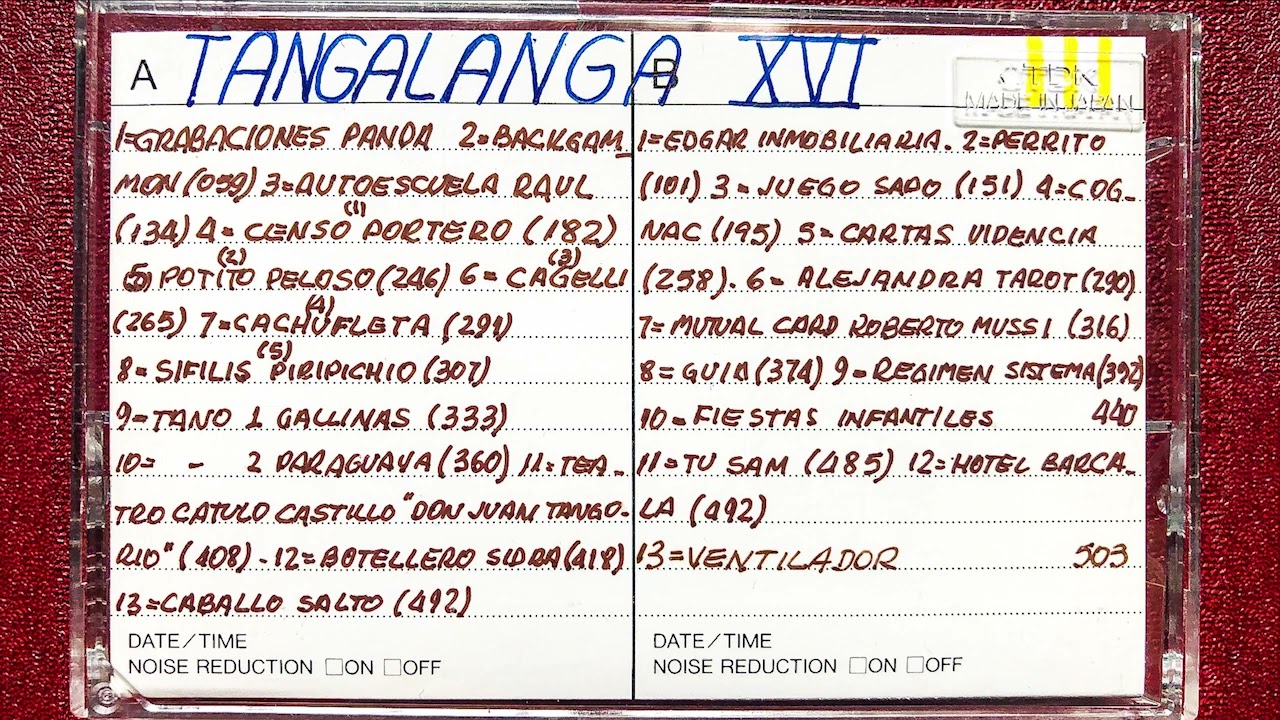 A TANGALANGA XVI
B
TDK
MADE IN JAPAN
1=GRABACIONES PANDA 2=BACKGAM_
MON (059) 3=AUTOESCUELA RAUL
(134) 4= CENSO (1) PORTERO (182)
5 POTITO (2) PELOSO (246) 6= CAGELLI (3)
(265) 7=CACHUFLETA (4) (291)
8= SIFILIS (5) PIRIPICHIO (307)
9=TANO 1 GALLINAS (333)
10= - 2 PARAGUAYA (360) 11=TEA_
TRO CATULO CASTILLO "DON JUAN TANGO-
RIO" (408) - 12=BOTELLERO SIDRA (418)
13=CABALLO SALTO (492)
DATE/TIME
NOISE REDUCTION □ON □OFF
1=EDGAR INMOBILIARIA. 2=PERRITO
(101) 3=JUEGO SAPO (151) 4=COG_
NAC (195) 5= CARTAS VIDENCIA
(258). 6= ALEJANDRA TAROT (290)
7= MUTUAL CARD ROBERTO MUSSI (316)
8= GUIA (374) 9=REGIMEN SISTEMA (392)
10=FIESTAS INFANTILES 440
11=TU SAM (485) 12=HOTEL BARCA_
LA (492)
13=VENTILADOR 503
DATE/TIME
NOISE REDUCTION □ON □OFF